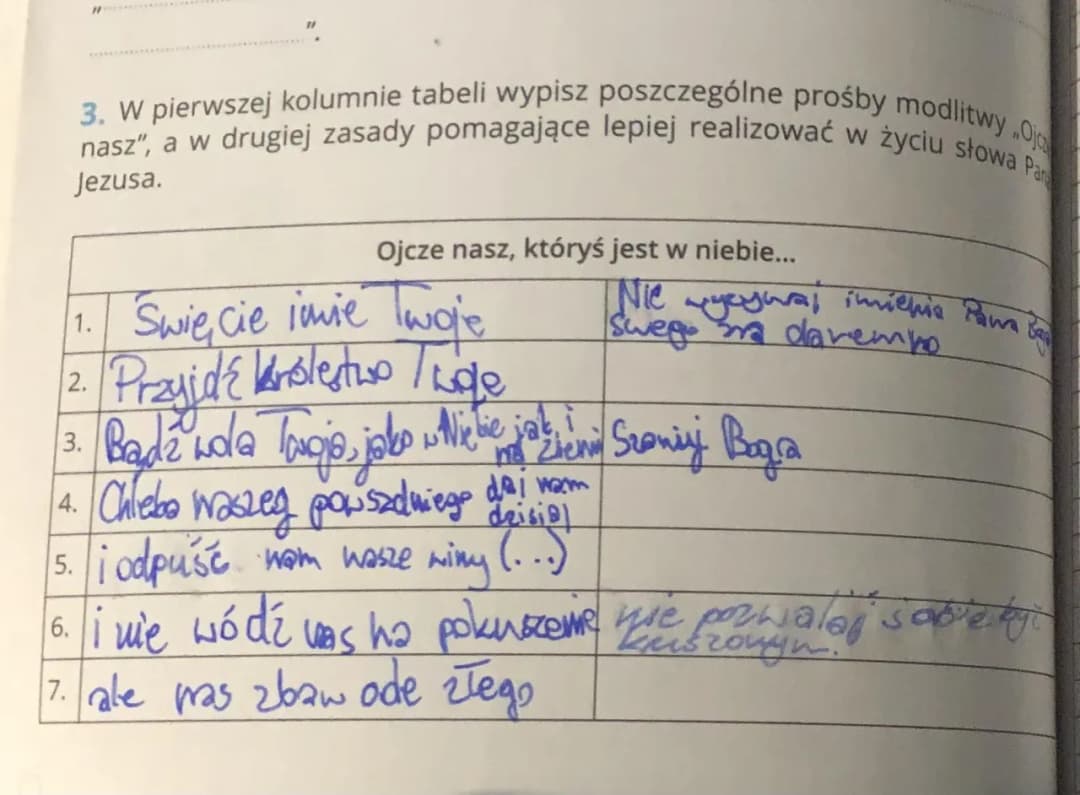 "
".
3. W pierwszej kolumnie tabeli wypisz poszczególne prośby modlitwy „Ojcz
nasz", a w drugiej zasady pomagające lepiej realizować w życiu słowa Pan
Jezusa.
Ojcze nasz, któryś jest w niebie...
1. Święcie imie Twoje
Nie wyzywaj imienia Pana Bog
Swego na daremno
2. Przyjdź królestwo Twoje
3. Bądź wola Twoja, jako w Niebie jak i
na Ziemi
Szanuj Boga
4. Chleba naszeg powszdniego daj nam
dzisiaj
5. i odpuść nam nasze winy (...)
6. i nie wódź nas na pokuszenie
nie pozwalaj sobie być
kuszonym.
7. ale nas zbaw ode złego